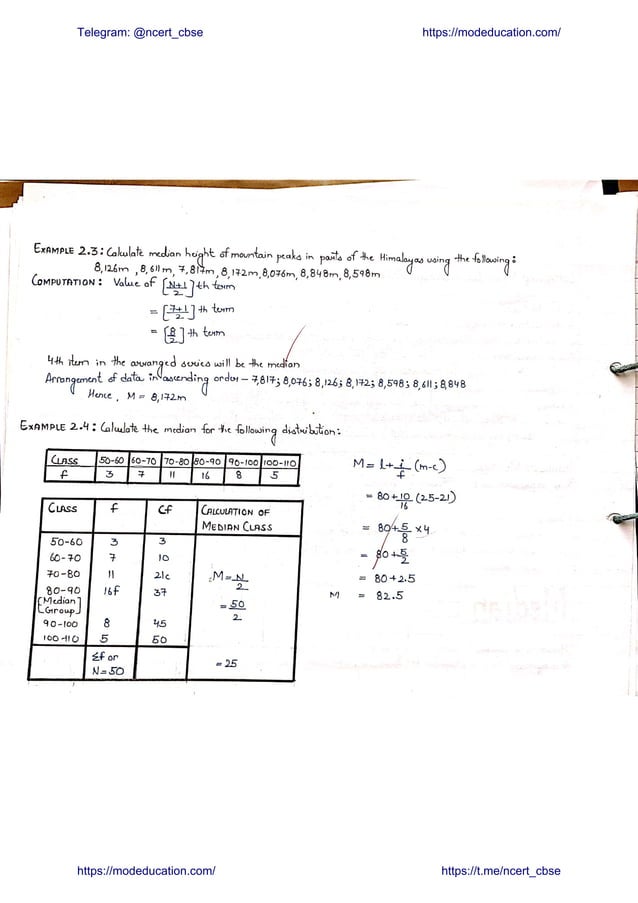 Telegram: @ncert_cbse https://modeducation.com/
EXAMPLE 2.3: Calculate median height of mountain peaks in parts of the Himalayas using the following:
8,126m, 8,611m, 7,817m, 8,172m, 8,076m, 8,848m, 8,598m
COMPUTATION: Value of [N+1/2]th term
= [7+1/2]th term
= [8/2]th term
4th item in the arranged series will be the median
Arrangement of data in ascending order – 7,817; 8,076; 8,126; 8,172; 8,598; 8,611; 8,848
Hence, M = 8,172m
EXAMPLE 2.4: Calculate the median for the following distribution:
CLASS 50-60 60-70 70-80 80-90 90-100 100-110
f 3 7 11 16 8 5
CLASS f Cf CALCULATION OF
MEDIAN CLASS
50-60 3 3
60-70 7 10
70-80 11 21c M = N/2
80-90 16f 37
[Median
Group] = 50/2
90-100 8 45
100-110 5 50
Σf or
N=50 = 25
M = l + i/f (m-c)
= 80 + 10/16 (25-21)
= 80 + 5/8 × 4
= 80 + 5/2
= 80 + 2.5
M = 82.5
https://modeducation.com/ https://t.me/ncert_cbse